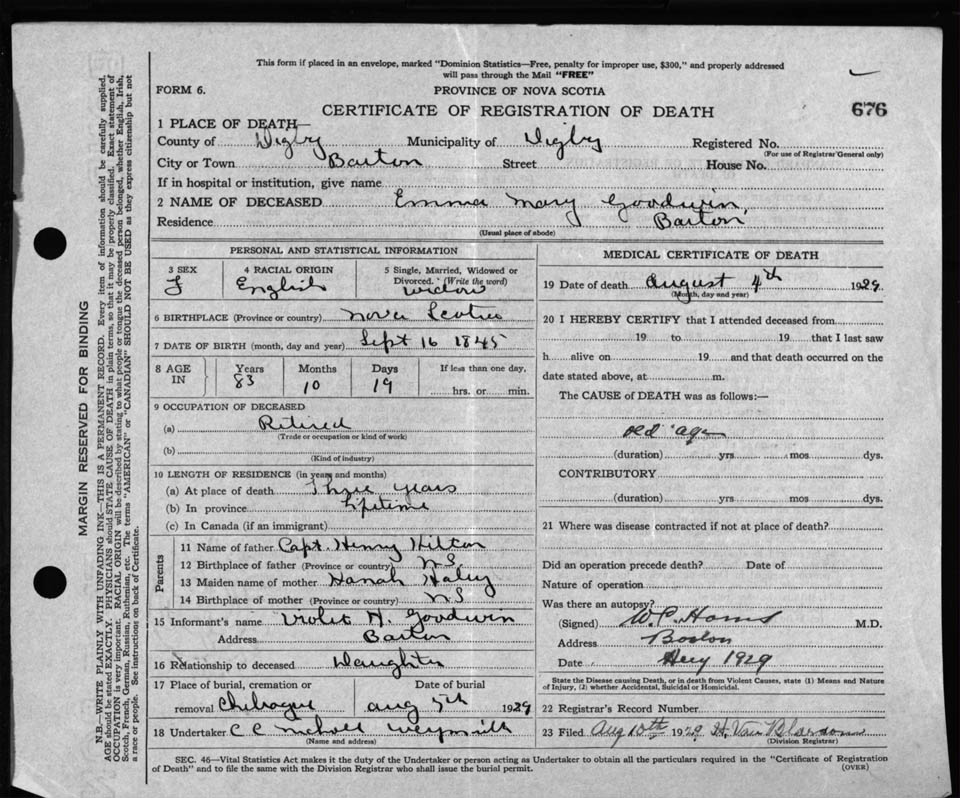 This form if placed in an envelope, marked "Dominion Statistics—Free, penalty for improper use, $300," and properly addressed
will pass through the Mail "FREE"
FORM 6.
PROVINCE OF NOVA SCOTIA
CERTIFICATE OF REGISTRATION OF DEATH
676
1 PLACE OF DEATH—
County of Digby Municipality of Digby Registered No.
(For use of Registrar General only)
City or Town Barton Street House No.
If in hospital or institution, give name
2 NAME OF DECEASED Emma Mary Goodwin,
Residence Barton
(Usual place of abode)
PERSONAL AND STATISTICAL INFORMATION
3 SEX
F
4 RACIAL ORIGIN
English
5 Single, Married, Widowed or
Divorced. (Write the word)
Widow
6 BIRTHPLACE (Province or country) Nova Scotia
7 DATE OF BIRTH (month, day and year) Sept 16 1845
8 AGE IN
Years Months Days If less than one day,
83 10 19 hrs. or min.
9 OCCUPATION OF DECEASED
(a) Retired
(Trade or occupation or kind of work)
(b)
(Kind of industry)
10 LENGTH OF RESIDENCE (in years and months)
(a) At place of death Three years
(b) In province Lifetime
(c) In Canada (if an immigrant)
Parents
11 Name of father Capt. Henry Hilton
12 Birthplace of father (Province or country) N.S.
13 Maiden name of mother Hanah Haley
14 Birthplace of mother (Province or country) N S
15 Informant's name Violet H. Goodwin
Address Barton
16 Relationship to deceased Daughter
17 Place of burial, cremation or Date of burial
removal Chebogue aug 5th 1929
18 Undertaker C C Weymouth
(Name and address)
MEDICAL CERTIFICATE OF DEATH
19 Date of death August 4th 1929
(Month, day and year)
20 I HEREBY CERTIFY that I attended deceased from
19 to 19 that I last saw
h alive on 19 and that death occurred on the
date stated above, at m.
The CAUSE of DEATH was as follows:—
old age
(duration) yrs mos dys.
CONTRIBUTORY
(duration) yrs mos dys.
21 Where was disease contracted if not at place of death?
Did an operation precede death? Date of
Nature of operation
Was there an autopsy?
(Signed) W.C. M.D.
Address Boston
Date 1929
State the Disease causing Death, or in death from Violent Causes, state (1) Means and Nature
of Injury, (2) whether Accidental, Suicidal or Homicidal.
22 Registrar's Record Number
23 Filed Aug 10th 1929 H. Van
(Division Registrar)
SEC. 46—Vital Statistics Act makes it the duty of the Undertaker or person acting as Undertaker to obtain all the particulars required in the "Certificate of Registration
of Death" and to file the same with the Division Registrar who shall issue the burial permit.
(OVER)
MARGIN RESERVED FOR BINDING
N.B.—WRITE PLAINLY WITH UNFADING INK—THIS IS A PERMANENT RECORD. Every item of information should be carefully supplied.
AGE should be stated EXACTLY. PHYSICIANS should STATE CAUSE OF DEATH in plain terms, so that it may be properly classified. Exact statement of
OCCUPATION is very important. RACIAL ORIGIN will be described by stating to what people or tongue the deceased person belonged, whether English, Irish,
Scotch, French, German, Russian, Ruthenian, etc. The terms "AMERICAN" or "CANADIAN" SHOULD NOT BE USED as they express citizenship but not
a race or people. See instructions on back of Certificate.